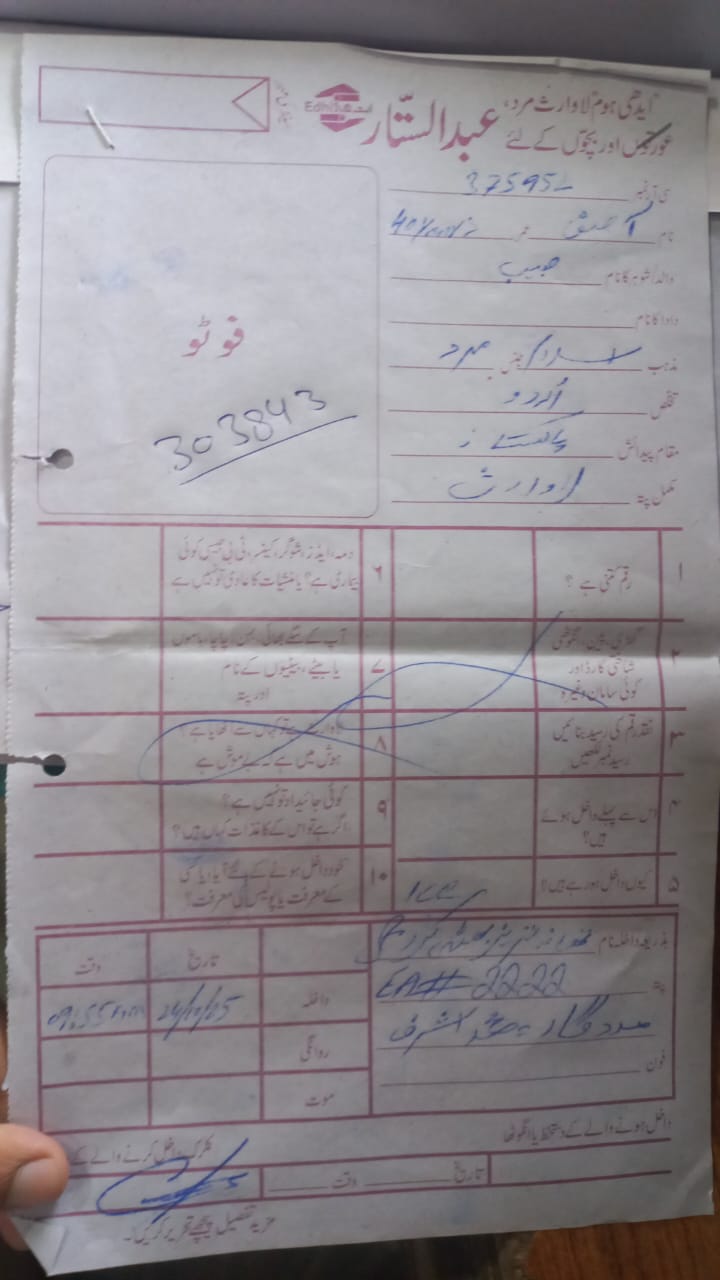 ایدھی ہوم لاوارث مرد،
عورتوں اور بچوں کے لئے
عبدالستّار Edhi ایدھی
سی آر نمبر
نام عمر
والد/شوہر کا نام حبیب
دادا کا نام
مذہب اسلام جنس مرد
تخلص اُردو
مقام پیدائش پاکستان
مکمل پتہ لاوارث
فوٹو
303843
۱ رقم کتنی ہے ؟
۲ گھڑی، پین، انگوٹھی
شناختی کارڈ اور
کوئی سامان وغیرہ
۳ نقد رقم کی رسید بنائیں
رسید نمبر لکھیں
۴ اس سے پہلے داخل ہوئے
ہیں؟
۵ کیوں داخل ہو رہے ہیں؟
۶ دمہ، ایڈز، شوگر، کینسر، ٹی بی جیسی کوئی
بیماری ہے؟ یا منشیات کا عادی تو نہیں ہے
۷ آپ کے سگے بھائی، بہن، چاچا، ماموں
یا بیٹے، بیٹیوں کے نام
اور پتہ
۸ لاوارث ہے تو کہاں سے اٹھایا ہے؟
ہوش میں ہے کہ بے ہوش ہے
۹ کوئی جائیداد تو نہیں ہے؟
اگر ہے تو اس کے کاغذات کہاں ہیں؟
۱۰ خود داخل ہونے کے لئے آیا، یا کسی
کے معرفت یا پولیس کی معرفت؟
بذریعہ داخلہ نام
پتہ EA# 22-22
فون
تاریخ وقت
داخلہ 24/10/25 09:55
روانگی
موت
داخل ہونے والے کے دستخط یا انگوٹھا
کلرک داخل کرنے والے کے
تاریخ وقت
مزید تفصیل پیچھے تحریر کریں۔